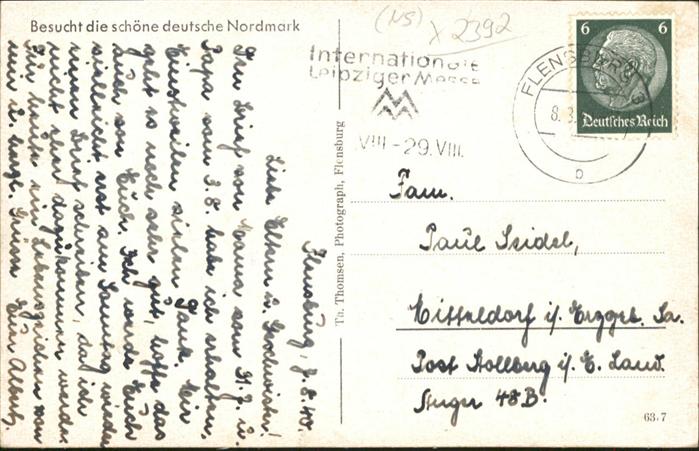 Besucht die schöne deutsche Nordmark
(NS)
x 2392
Internationale
Leipziger Messe
VIII - 29. VIII.
FLENSBURG 3
8.8.
6 6
Deutsches Reich
Flensburg, 7.8.40.
Liebe Eltern u. Geschwister!
Den Brief von Mama vom 31.7. u.
Papa vom 3.8. habe ich erhalten.
Einstweilen vielen Dank. Mir
geht es noch sehr gut, hoffe das
auch von Euch. Ich werde Euch
vielleicht erst am Sonntag wieder
einen Brief schreiben, da ich
nicht eher dazukommen werde.
Für heute ein Lebenszeichen von
mir u. herzl. Grüße Euer Albert.
Th. Thomsen, Photograph, Flensburg
Fam.
Paul Seidel,
Mitteldorf i/ Erzgeb. Sa.
Post Stollberg i/ E. Land.
Anger 48B.
63.7